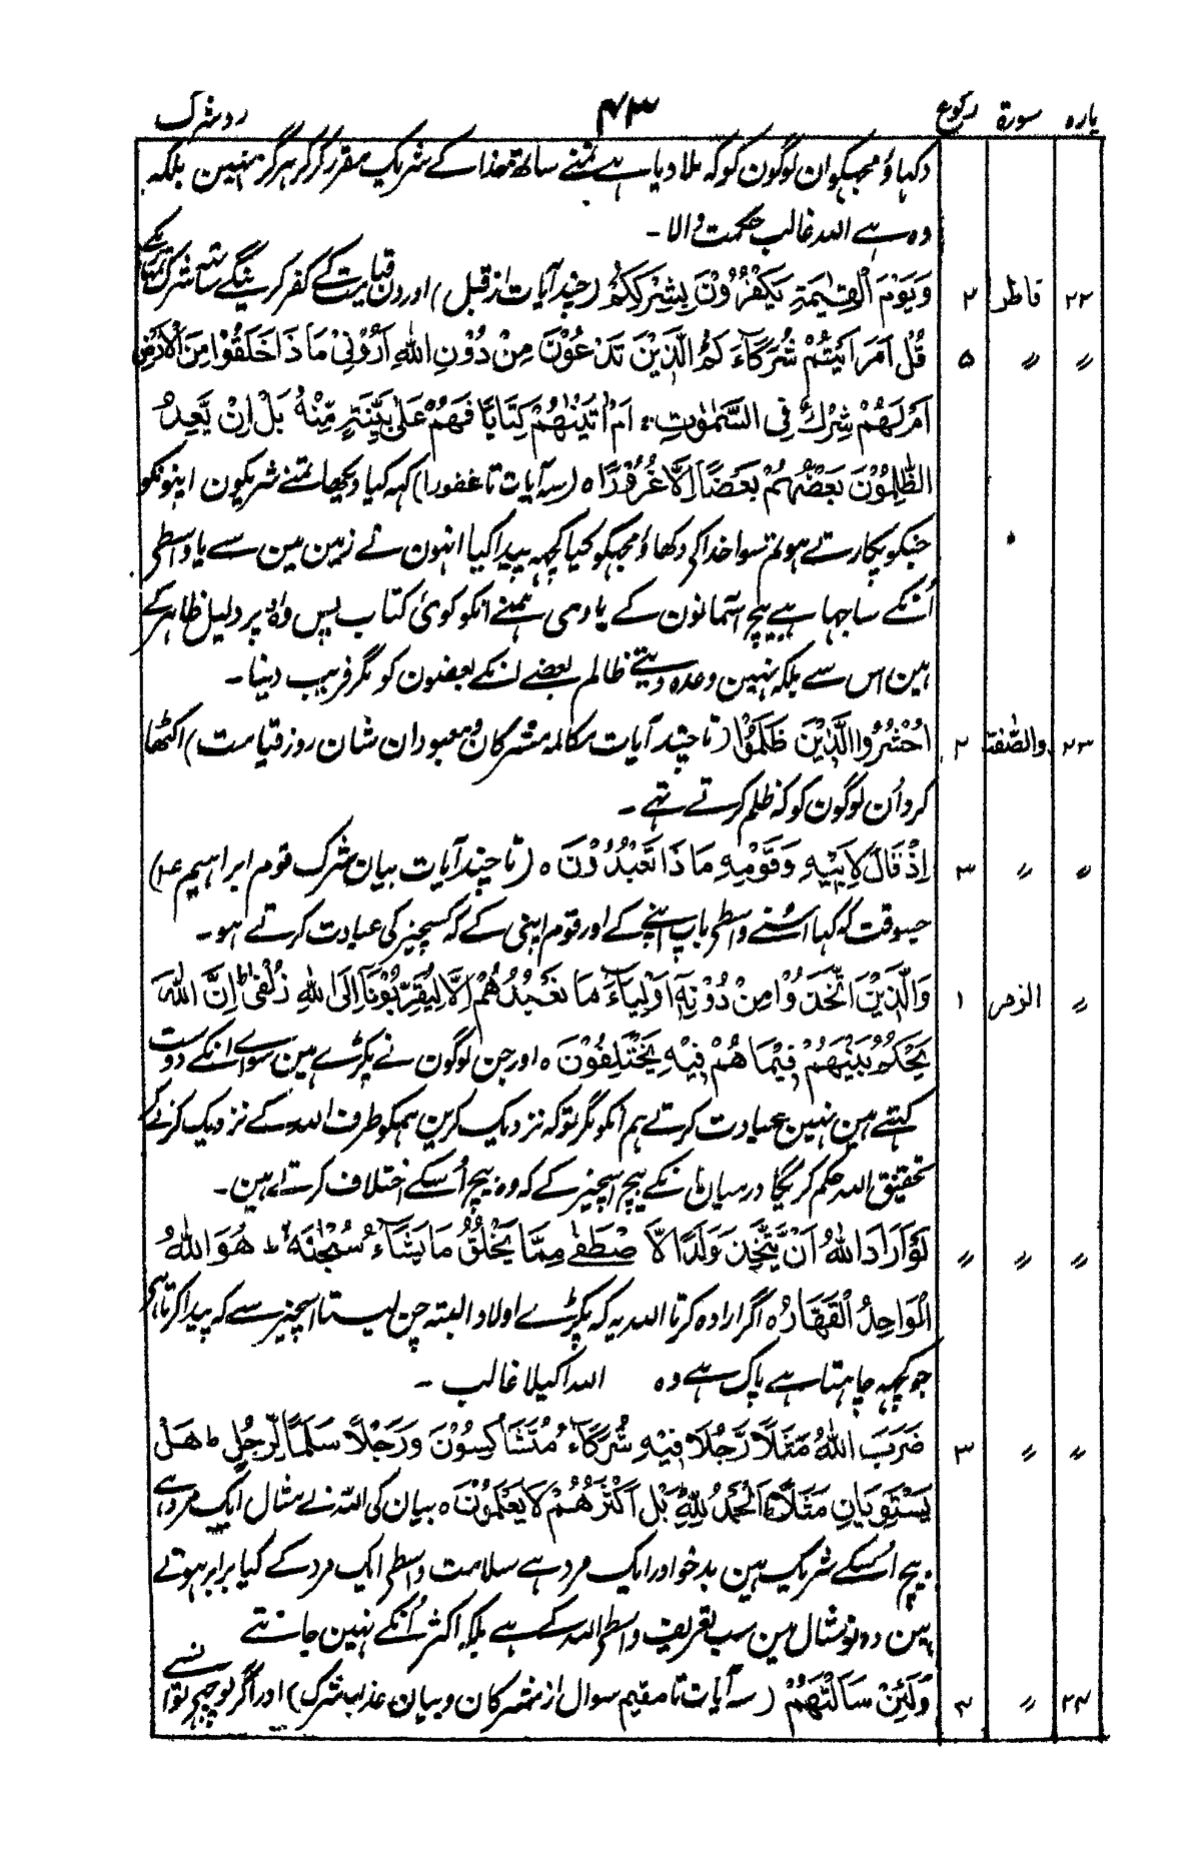 پارہ سورۃ رکوع ۴۳ رد شرک
دکھاؤ مجھکو ان لوگون کو کہ ملا دیا ہے تمنے ساتھ خدا کے شریک مقرر کرکر ہرگز نہین بلکہ
وہ ہے اللہ غالب حکمت والا۔
۲۲ فاطر ۲ وَيَوْمَ الْقِيٰمَةِ يَكْفُرُوْنَ بِشِرْكِكُمْ (چند آیات از قبل) اور دن قیامت کے کفر کرینگے ساتھ شرک تمہارے کے
〃 〃 ۵ قُلْ اَرَءَيْتُمْ شُرَكَآءَكُمُ الَّذِيْنَ تَدْعُوْنَ مِنْ دُوْنِ اللّٰهِ اَرُوْنِيْ مَاذَا خَلَقُوْا مِنَ الْاَرْضِ
اَمْ لَهُمْ شِرْكٌ فِي السَّمٰوٰتِ ۚ اَمْ اٰتَيْنٰهُمْ كِتَابًا فَهُمْ عَلٰى بَيِّنَةٍ مِّنْهُ بَلْ اِنْ يَّعِدُ
الظّٰلِمُوْنَ بَعْضُهُمْ بَعْضًا اِلَّا غُرُوْرًا ہ (سہ آیات تا غفورا) کہہ کیا دیکھا تمنے شریکون اپنونکو
جنکو پکارتے ہو تم سوا خدا کی دکھاؤ مجھکو کیا کچھ پیدا کیا انہون نے زمین مین سے یا واسطی
اُنکے ساجہا ہے بیچ آسمانون کے یا دی ہمنے انکو کوئی کتاب پس وہ اوپر دلیل ظاہر کے
ہین اس سے بلکہ نہین وعدہ دیتے ظالم بعضے انکے بعضون کو مگر فریب دینا۔
۲۳ والصّٰفّٰت ۲ اُحْشُرُوا الَّذِيْنَ ظَلَمُوْا (تا چند آیات مکالمہ مشرکان و معبودان شان روز قیامت) اکٹھا
کرو اُن لوگون کو کہ ظلم کرتے تہے۔
〃 〃 ۳ اِذْ قَالَ لِاَبِيْهِ وَقَوْمِهٖ مَاذَا تَعْبُدُوْنَ ہ (تا چند آیات بیان شرک قوم ابراہیم ع)
جسوقت کہ کہا اسنے واسطی باپ اپنے کے اور قوم اپنی کے کہ کسچیز کی عبادت کرتے ہو۔
〃 الزمر ۱ وَالَّذِيْنَ اتَّخَذُوْا مِنْ دُوْنِهٖٓ اَوْلِيَآءَ مَا نَعْبُدُهُمْ اِلَّا لِيُقَرِّبُوْنَآ اِلَى اللّٰهِ زُلْفٰى ط اِنَّ اللّٰهَ
يَحْكُمُ بَيْنَهُمْ فِيْمَا هُمْ فِيْهِ يَخْتَلِفُوْنَ ہ اور جن لوگون نے پکڑے ہین سواے انکے دوست
کہتے ہین نہین عبادت کرتے ہم انکو مگر تو کہ نزدیک کرین ہمکو طرف اللہ کے نزدیک کرنے کر
تحقیق اللہ حکم کریگا درمیان انکے بیچ اسچیز کے کہ وہ بیچ اُسکے اختلاف کرتے ہین۔
〃 〃 〃 لَوْ اَرَادَ اللّٰهُ اَنْ يَّتَّخِذَ وَلَدًا لَّاصْطَفٰى مِمَّا يَخْلُقُ مَا يَشَآءُ سُبْحٰنَهٗ ط هُوَ اللّٰهُ
الْوَاحِدُ الْقَهَّارُ ہ اگر ارادہ کرتا اللہ یہ کہ پکڑے اولاد البتہ چن لیتا اسچیز سے کہ پیدا کرتا ہے
جو کچھ چاہتا ہے پاک ہے وہ اللہ اکیلا غالب۔
〃 〃 ۳ ضَرَبَ اللّٰهُ مَثَلًا رَّجُلًا فِيْهِ شُرَكَآءُ مُتَشَاكِسُوْنَ وَرَجُلًا سَلَمًا لِّرَجُلٍ ط هَلْ
يَسْتَوِيَانِ مَثَلًا ط اَلْحَمْدُ لِلّٰهِ بَلْ اَكْثَرُهُمْ لَا يَعْلَمُوْنَ ہ بیان کی اللہ نے مثال ایک مرد ہے
بیچ اُسکے شریک ہین بدخو اور ایک مرد ہے سلامت واسطی ایک مرد کے کیا برابر ہوتے
ہین دونو مثال مین سب تعریف واسطی اللہ کے ہے بلکہ اکثر اُنکے نہین جانتے
۲۴ 〃 ۴ وَلَئِنْ سَاَلْتَهُمْ (سہ آیات تا مقیم سوال از مشرکان و بیان عذاب شرک) اور اگر پوچھے تو انسے